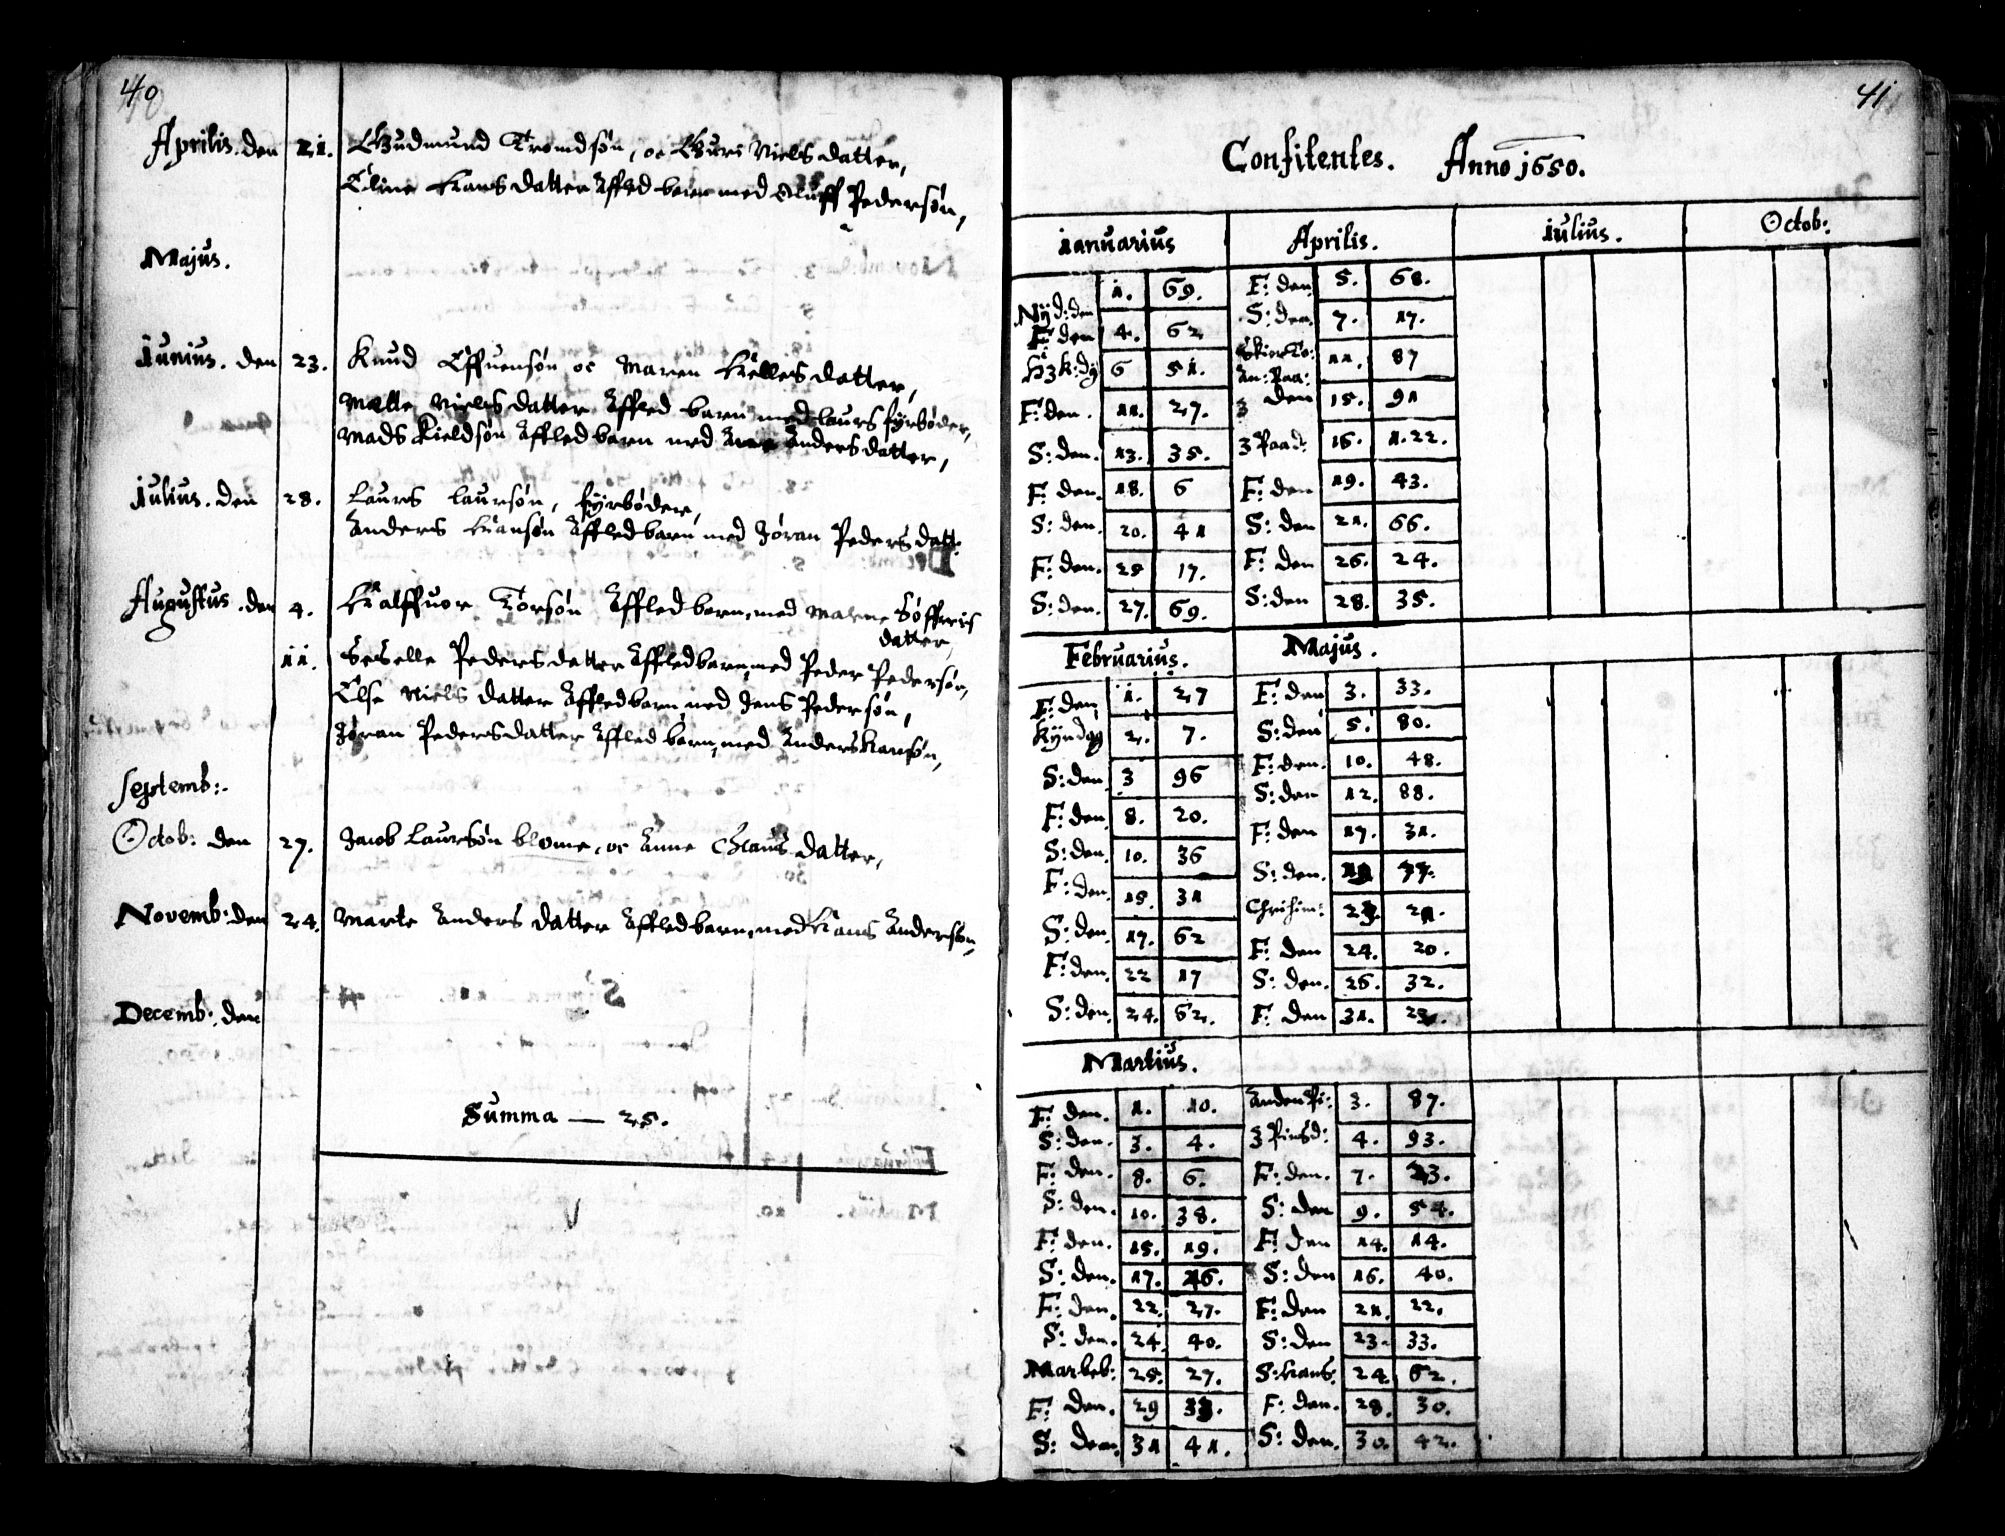 40
Aprilis. den 21. Gudmund Tromdsøn, oc Guri Nielsdatter,
Eline Hansdatter Afled barn med Oluff Pedersøn,
Majus.
Junius. den 23. Knud Effuensøn oc Maren Kiellesdatter,
Mette Nielsdatter Afled barn med Laurs fyrbøder,
Mads Kieldsøn Afled barn med Anne Andersdatter,
Julius. den 28. Laurs Laursøn, fyrbøder,
Anders Hansøn Afled barn med Jøran Pedersdatt:
Augustus. den 4. Halffuor Torsøn Afled barn med Marne Søffrens
datter,
11. Seselle Pedersdatter Afled barn med Peder Pedersøn,
Else Nielsdatter Afled barn med Jens Pedersøn,
Jøran Pedersdatter Afled barn med Anders Hansøn,
Septemb:
Octob: den 27. Jacob Laursøn blome, oc Anne Clausdatter,
Novemb: den 24. Marte Andersdatter Afled barn med Hans Andersøn,
Decemb: den
Summa — 25.
41
Confitentes. Anno 1650.
Januarius
Nÿd: den 1. 69.
F: den 4. 62
H 3 K: dÿ 6 51.
F: den. 11. 27.
S: den. 13. 35.
F: den. 18. 6
S: den. 20. 41
F: den. 25 17.
S: den. 27. 69.
Februarius.
F: den 1. 27
Kÿndg 2. 7.
S: den 3 96
F: den. 8. 20.
S: den. 10. 36
F: den. 15. 31
S: den. 17. 62
F: den. 22 17
S: den. 24. 62.
Martius.
F: den. 1. 10.
S: den. 3. 4.
F: den. 8. 6.
S: den. 10. 38.
F: den. 15. 19.
S: den. 17. 26.
F: den. 22. 27.
S: den. 24. 40.
Marbeb: 25. 27.
F: den. 29 33.
S: den. 31 41.
Aprilis.
F: den. 5. 68.
S: den. 7. 17.
SkierTo: 11. 87
An: Paa:
3 den 15. 91
3 Paad: 16. 122.
F: den 19. 43.
S: den 21. 66.
F: den 26. 24.
S: den 28. 35.
Majus.
F: den 3. 33.
S: den 5. 80.
F: den. 10. 48.
S: den 12. 88.
F: den 17. 31.
S: den. 19 77.
Chrihim: 23. 21.
F: den 24. 20.
S: den. 26. 32.
F: den 31.
Anden Pi: 3. 87.
3 Pinsd: 4. 93.
F: den. 7. 23.
S: den 9. 54.
F: den 14. 14.
S: den 16. 40.
F: den 21. 22.
S: den 23. 33.
S: Hans. 24. 62.
F: den. 28. 30.
S: den. 30. 42.
Julius.
Octob: